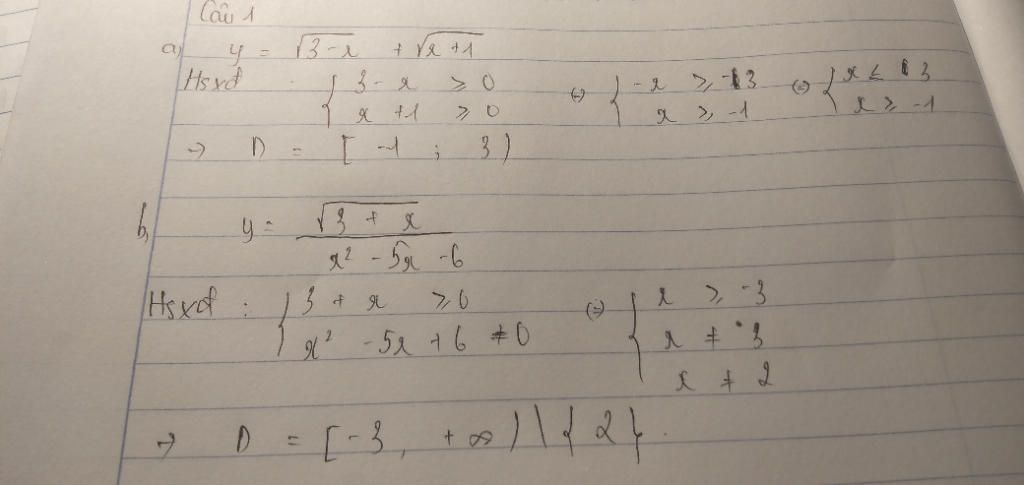 Câu 1
a, y = √(3-x) + √(x+1)
Hsxđ : { 3 - x ≥ 0 (=) { -x ≥ -3 (=) { x ≤ 3
x + 1 ≥ 0 x ≥ -1 x ≥ -1
→ D = [ -1 ; 3 )
b, y = √(3 + x) / (x² - 5x - 6)
Hsxđ : { 3 + x ≥ 0 (=) { x ≥ -3
x² - 5x + 6 ≠ 0 x ≠ 3
x ≠ 2
→ D = [ -3 , +∞ ) \ { 2 } .